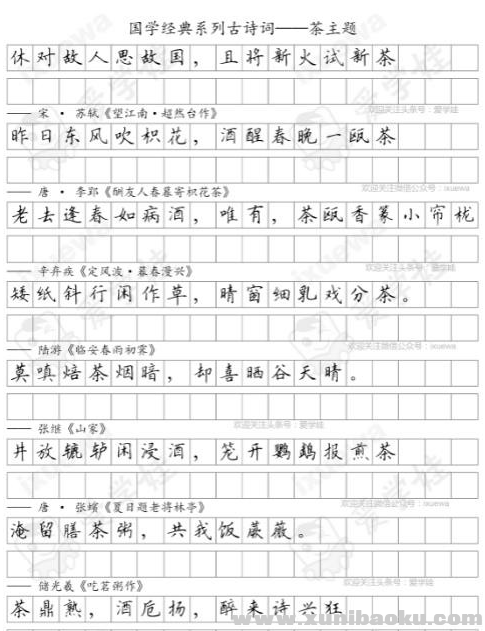 国学经典系列古诗词——茶主题
休对故人思故国，且将新火试新茶
欢迎关注头条号：爱学娃
—— 宋 · 苏轼《望江南·超然台作》
昨日东风吹枳花，酒醒春晚一瓯茶
欢迎关注微信公众号：ixuewa
—— 唐 · 李郢《酬友人春暮寄枳花茶》
老去逢春如病酒，唯有，茶瓯香篆小帘栊
欢迎关注头条号：爱学娃
—— 辛弃疾《定风波·暮春漫兴》
矮纸斜行闲作草，晴窗细乳戏分茶。
欢迎关注微信公众号：ixuewa
—— 陆游《临安春雨初霁》
莫嗔焙茶烟暗，却喜晒谷天晴。
欢迎关注头条号：爱学娃
—— 张继《山家》
井放辘轳闲浸酒，笼开鹦鹉报煎茶
欢迎关注微信公众号：ixuewa
—— 唐 · 张蠙《夏日题老将林亭》
淹留膳茶粥，共我饭蕨薇。
欢迎关注头条号：爱学娃
—— 储光羲《吃茗粥作》
茶鼎熟，酒卮扬，醉来诗兴狂
www.xunibaoku.com